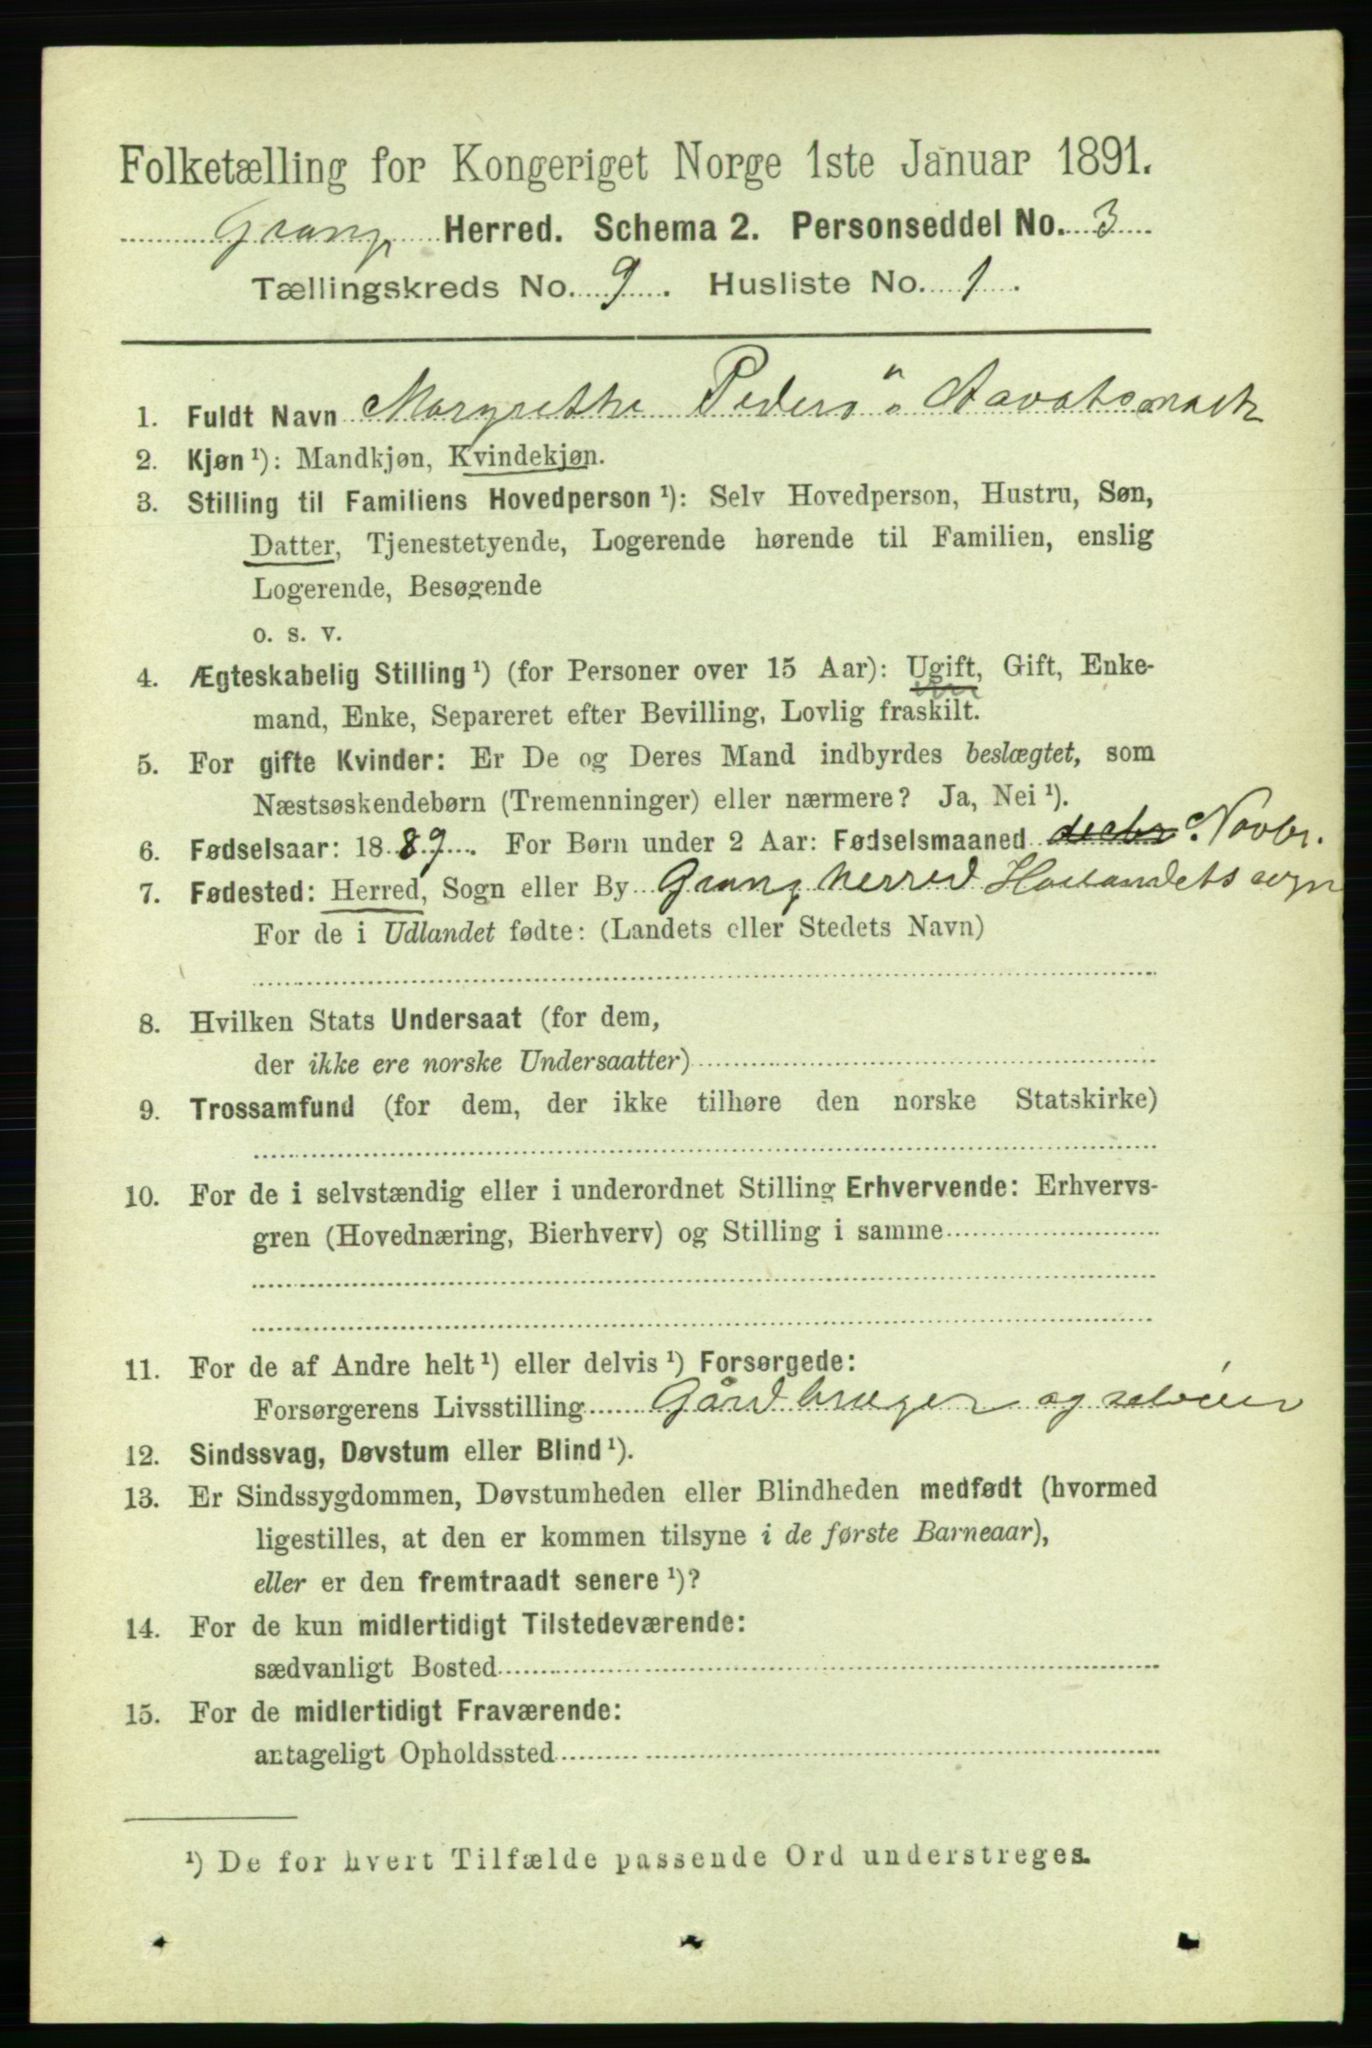 Folketælling for Kongeriget Norge 1ste Januar 1891.
Grong Herred. Schema 2. Personseddel No. 3
Tællingskreds No. 9. Husliste No. 1.
1. Fuldt Navn Margrethe Peders " Aavatsmark
2. Kjøn ¹): Mandkjøn, Kvindekjøn.
3. Stilling til Familiens Hovedperson ¹): Selv Hovedperson, Hustru, Søn,
Datter, Tjenestetyende, Logerende hørende til Familien, enslig
Logerende, Besøgende
o. s. v.
4. Ægteskabelig Stilling ¹) (for Personer over 15 Aar): Ugift, Gift, Enke-
mand, Enke, Separeret efter Bevilling, Lovlig fraskilt.
5. For gifte Kvinder: Er De og Deres Mand indbyrdes beslægtet, som
Næstsøskendebørn (Tremenninger) eller nærmere? Ja, Nei ¹).
6. Fødselsaar: 1889. For Børn under 2 Aar: Fødselsmaaned decbr Novbr.
7. Fødested: Herred, Sogn eller By Grong herred Harlandets sogn
For de i Udlandet fødte: (Landets eller Stedets Navn)
8. Hvilken Stats Undersaat (for dem,
der ikke ere norske Undersaatter)
9. Trossamfund (for dem, der ikke tilhøre den norske Statskirke)
10. For de i selvstændig eller i underordnet Stilling Erhvervende: Erhvervs-
gren (Hovednæring, Bierhverv) og Stilling i samme
11. For de af Andre helt ¹) eller delvis ¹) Forsørgede:
Forsørgerens Livsstilling Gårdbruger og selveier
12. Sindssvag, Døvstum eller Blind ¹).
13. Er Sindssygdommen, Døvstumheden eller Blindheden medfødt (hvormed
ligestilles, at den er kommen tilsyne i de første Barneaar),
eller er den fremtraadt senere ¹)?
14. For de kun midlertidigt Tilstedeværende:
sædvanligt Bosted
15. For de midlertidigt Fraværende:
antageligt Opholdssted
¹) De for hvert Tilfælde passende Ord understreges.